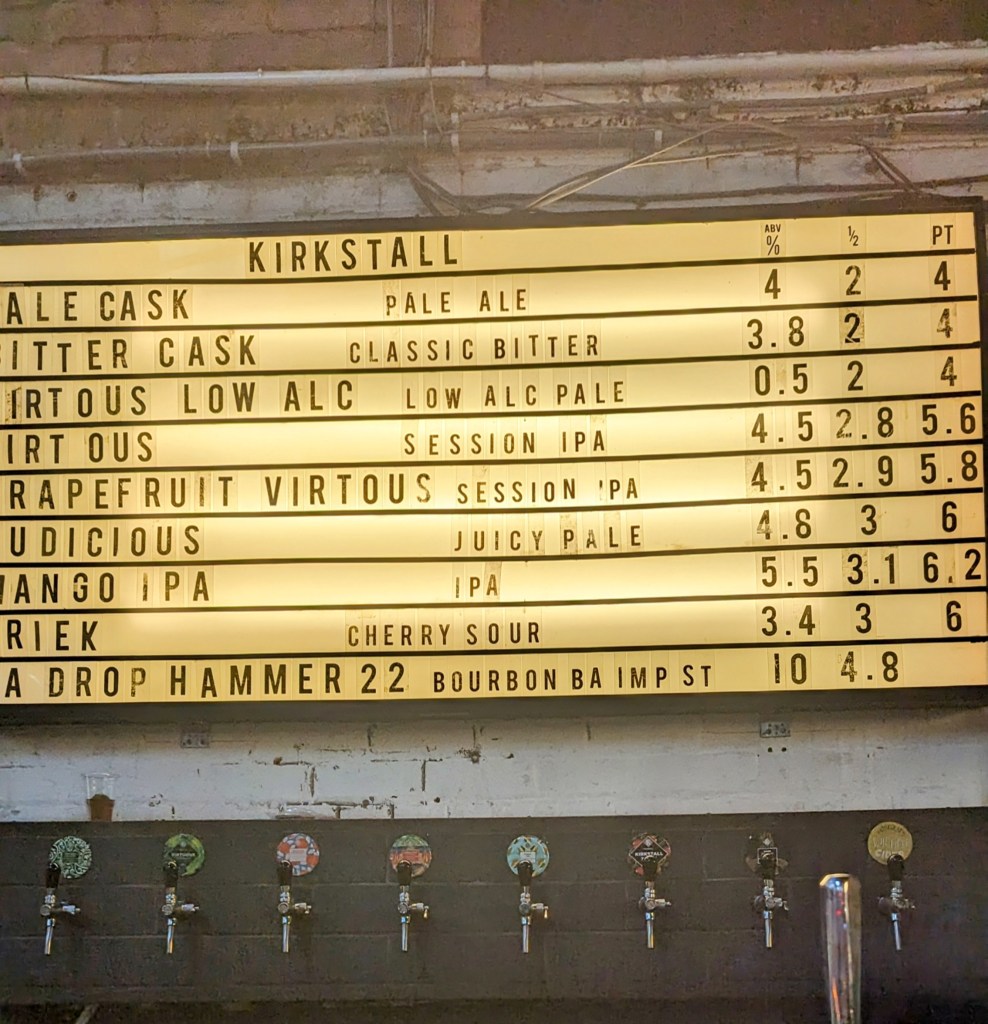 KIRKSTALL ABV % ½ PT
ALE CASK PALE ALE 4 2 4
ITTER CASK CLASSIC BITTER 3.8 2 4
IRTOUS LOW ALC LOW ALC PALE 0.5 2 4
IRT OUS SESSION IPA 4.5 2.8 5.6
RAPEFRUIT VIRTOUS SESSION IPA 4.5 2.9 5.8
UDICIOUS JUICY PALE 4.8 3 6
MANGO IPA IPA 5.5 3.1 6.2
RIEK CHERRY SOUR 3.4 3 6
A DROP HAMMER 22 BOURBON BA IMP ST 10 4.8
KIRKSTALL